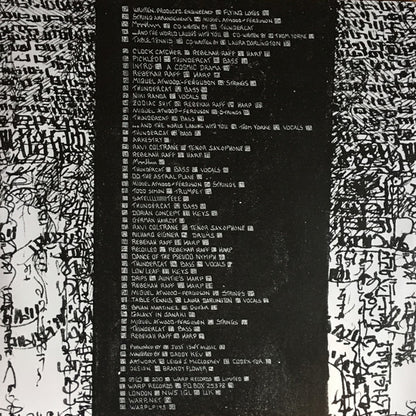 WRITTEN, PRODUCED, ENGINEERED FLYING LOTUS
STRING ARRANGEMENTS MIGUEL ATWOOD-FERGUSON
MmmHmm CO-WRITTEN BY THUNDERCAT
...AND THE WORLD LAUGHS WITH YOU CO-WRITTEN BY THOM YORKE
TABLE TENNIS CO-WRITTEN BY LAURA DARLINGTON
CLOCK CATCHER REBEKAH RAFF HARP
PICKLED! THUNDERCAT BASS
INTRO A COSMIC DRAMA
REBEKAH RAFF HARP
MIGUEL ATWOOD-FERGUSON STRINGS
THUNDERCAT BASS
NIKI RANDA VOCALS
ZODIAC SHIT REBEKAH RAFF HARP
MIGUEL ATWOOD-FERGUSON STRINGS
THUNDERCAT BASS
...AND THE WORLD LAUGHS WITH YOU THOM YORKE VOCALS
THUNDERCAT BASS
ARKESTRY
RAVI COLTRANE TENOR SAXOPHONE
REBEKAH RAFF HARP
MmmHmm
THUNDERCAT BASS VOCALS
DO THE ASTRAL PLANE
MIGUEL ATWOOD-FERGUSON STRINGS
TODD SIMON TRUMPET
THUNDERCAT BASS
DORIAN CONCEPT KEYS
GERMAN HAIRCUT
RAVI COLTRANE TENOR SAXOPHONE
RICHARD EIGNER DRUMS
REBEKAH RAFF HARP
RECOILED REBEKAH RAFF HARP
DANCE OF THE PSEUDO NYMPH
THUNDERCAT BASS VOCALS
LOW LEAF KEYS
DRIPS AUNTIE'S HARP
REBEKAH RAFF HARP
MIGUEL ATWOOD-FERGUSON STRINGS
TABLE TENNIS LAURA DARLINGTON VOCALS
BRIAN MARTINEZ GUITAR
GALAXY IN JANAKI
MIGUEL ATWOOD-FERGUSON STRINGS
THUNDERCAT BASS
REBEKAH RAFF HARP
PUBLISHED BY JUST ISN'T MUSIC
MASTERED BY DADDY KEV
ARTWORK LEIGH J McCLOSKEY CODEX TOR
DESIGN BRANDY FLOWER
2010 WARP RECORDS LIMITED
WARP RECORDS PO BOX 25378
LONDON NW5 1GL UK
WARP.NET
WARPLP195